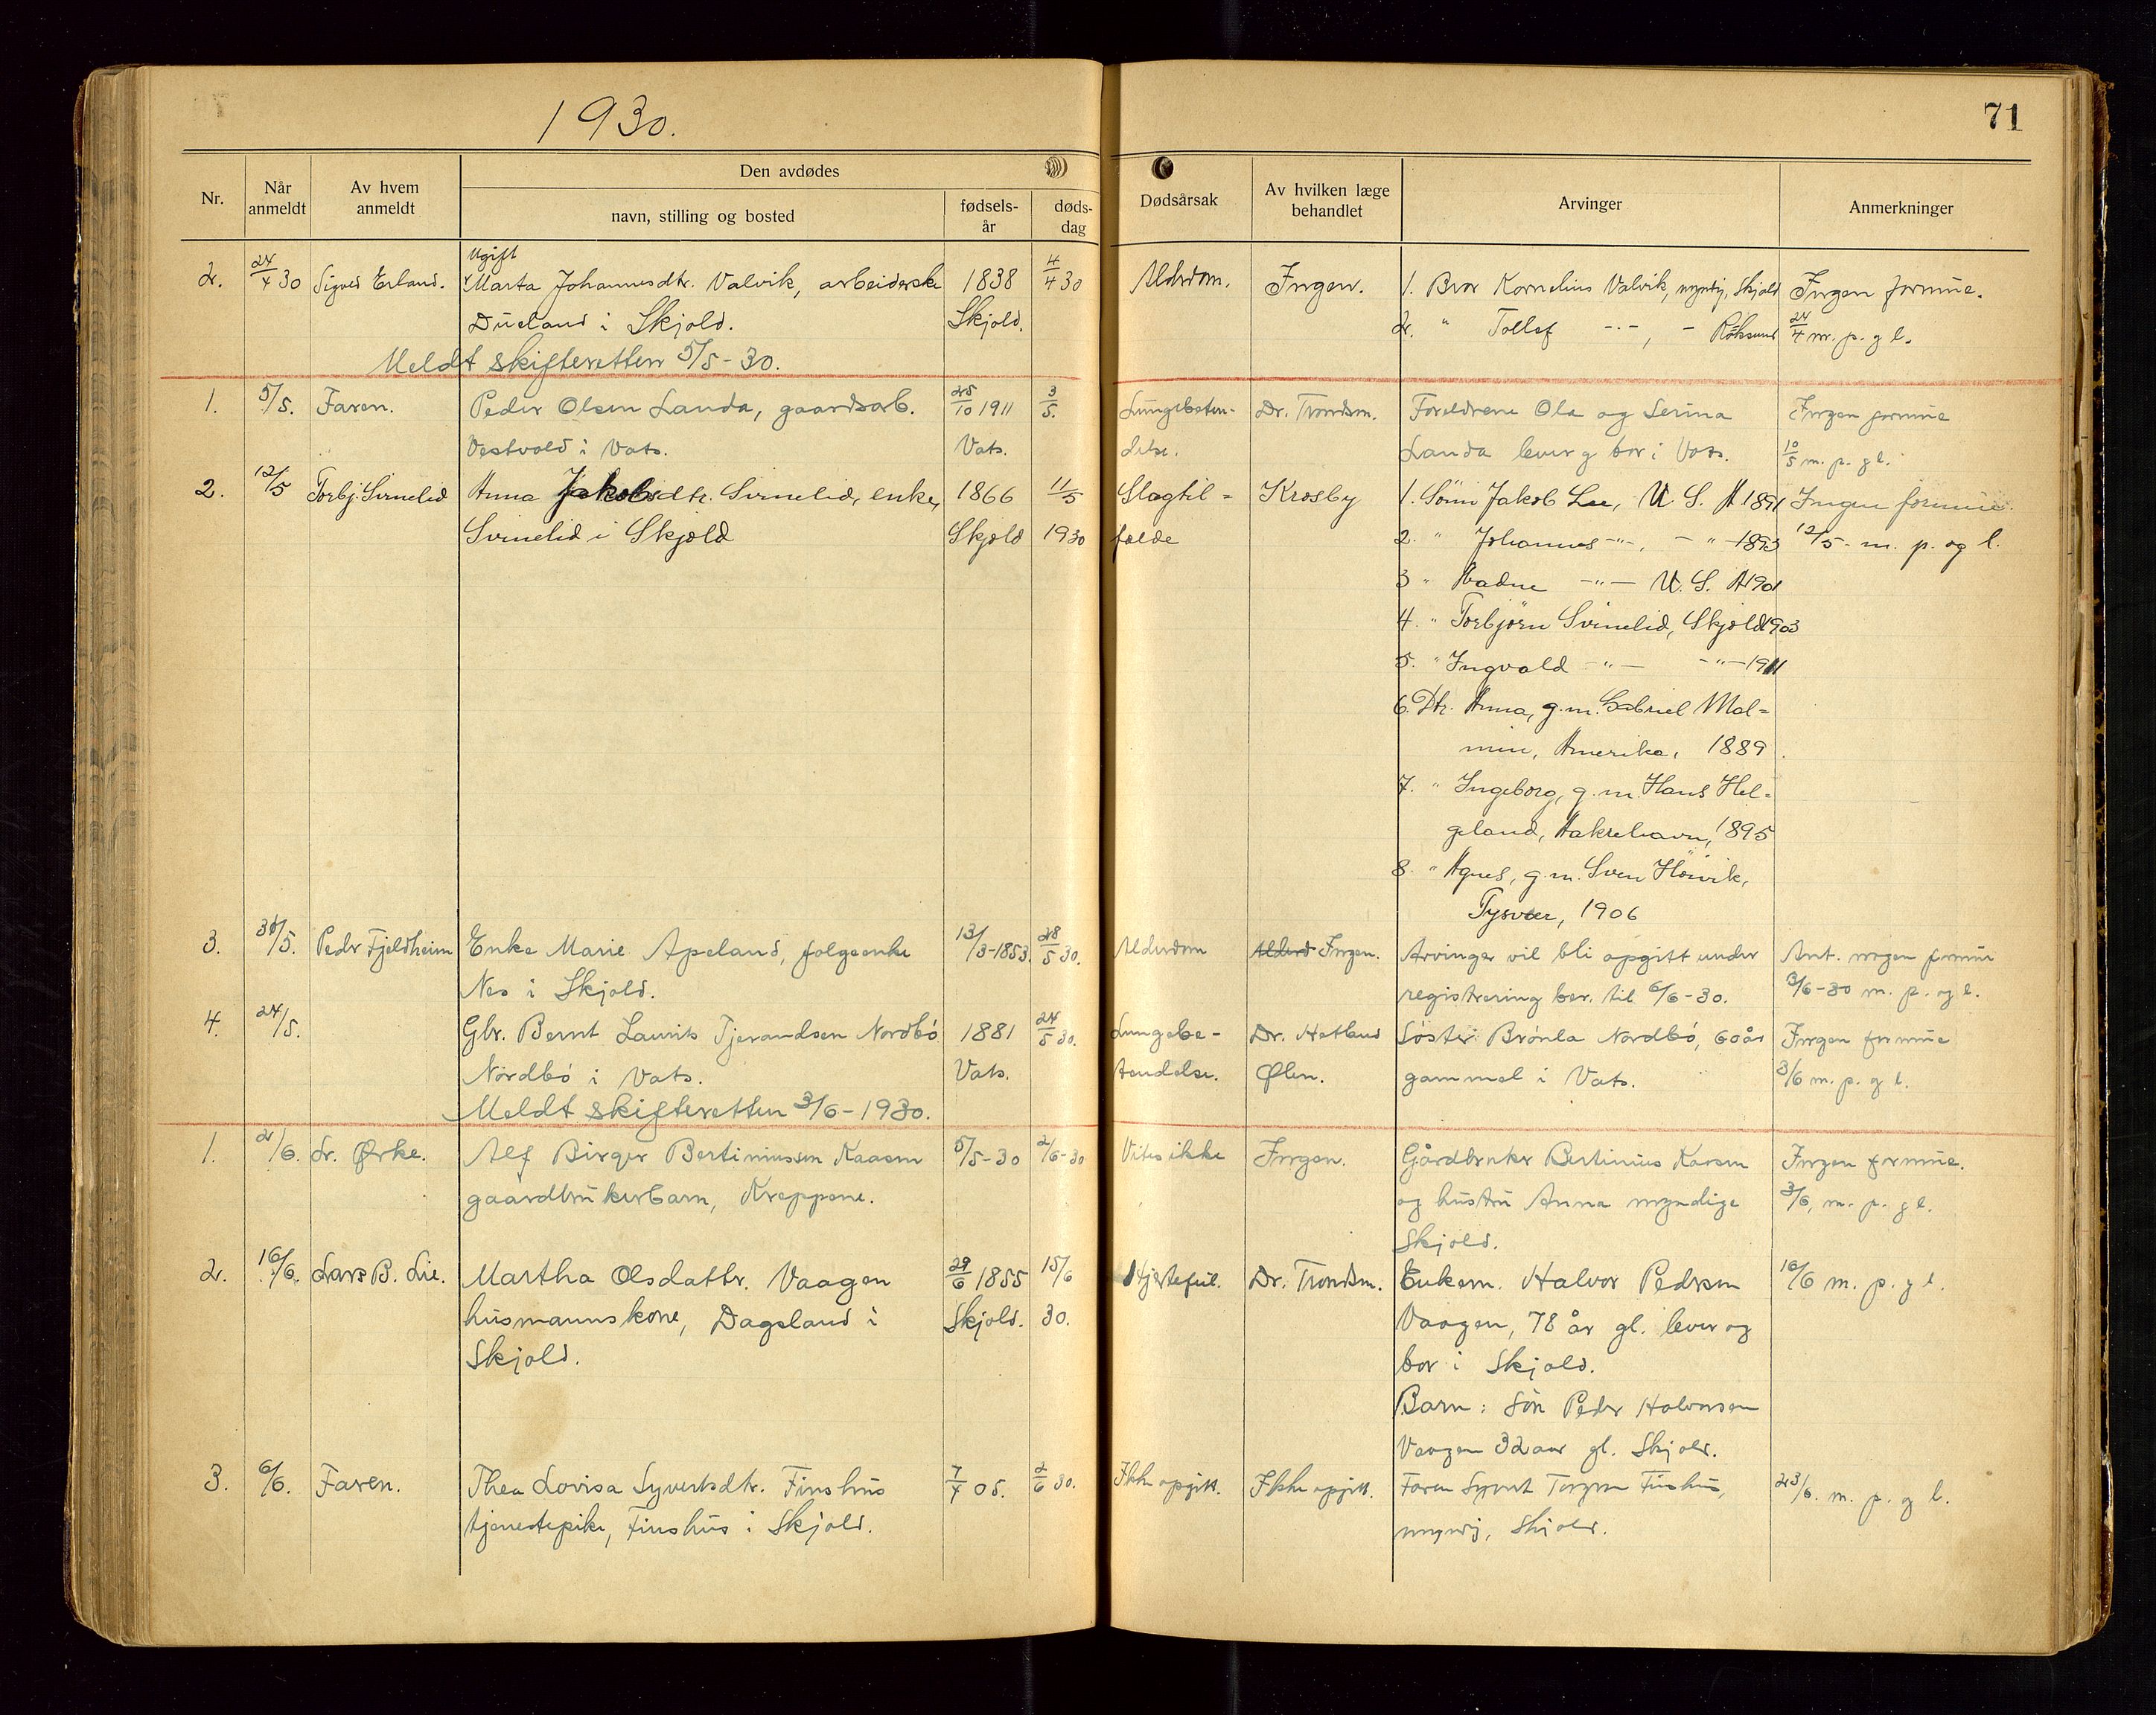 1930.
71
Nr.
Når anmeldt
Av hvem anmeldt
Den avdødes
navn, stilling og bosted
fødsels-år
døds-dag
Dødsårsak
Av hvilken læge behandlet
Arvinger
Anmerkninger
2. 24/4 30 Sigved Erland. Ugift Marta Johannesdtr. Valvik, arbeiderske 1838 4/4 30 Alderdom. Ingen. 1. Bror Kornelius Valvik, myndig, Skjold Ingen formue.
Dueland i Skjold. Skjold. 2. " Tollef -"-, - Røksund 24/4 m. p. g l.
Meldt skifteretten 5/5-30.
1. 5/5. Faren. Peder Olsen Landa, gaardsarb. 25/10 1911 3/5. Lungebeten- Dr. Trondsen. Foreldrene Ola og Serina Ingen formue
Vestvold i Vats. Vats. delse. Landa lever g bor i Vats. 10/5 m. p. g l.
2. 12/5 Torbj. Svinelid Anna Jakobsdtr. Svinelid, enke, 1866 11/5 Slagtil= Krosby 1. Sönn Jakob Lee, U. S. A 1891 Ingen formue.
Svinelid i Skjold Skjold 1930 fælde 2. " Johannes -"-, - " - 1893 12/5 - m. p. og l.
3 " -"- U. S. A 1901
4. " Torbjörn Svinelid, Skjold 1903
5. " Ingvald -"- -"- 1911
6. Dtr. Anna, g.m. Gabriel Mal=
min, Amerika, 1889
7. " Ingeborg, g.m. Hans Hel=
geland, Aakrehavn, 1895
8. " Agnes, g.m. Sven Höivik,
Tysvær, 1906
3. 31/5. Peder Fjeldheim Enke Marie Apeland, folgeenke 13/3-1853. 28/5 30. Alderdom Alderd Ingen. Arvinger vil bli opgitt under Ant. nogen formue
Nes i Skjold. registrering ber. til 6/6-30. 3/6-30 m. p. og l.
4. 24/5. Gbr. Bernt Laurits Tjerandsen Nordbö 1881 24/5 30. Lungebe- Dr. Hetland Søster: Brønla Nordbó, 60 år Ingen formue
Nordbó i Vats. Vats. tendelse. Ølen. gammel i Vats. 3/6 m. p. g l.
Meldt skifteretten 3/6-1930.
1. 2/6. dr. Ørke. Alf Birger Bertiniussen Kaasen 5/5-30 2/6-30 Vites ikke Ingen. Gårdbruker Bertinius Kaasen Ingen formue.
gaardbrukerbarn, Kreppene. og hustru Anna myndige 3/6, m. p. g l.
Skjold.
2. 16/6. Lars B. Lie. Martha Olsdattr. Vaagen 29/6 1855 15/6 Hjertefeil. Dr. Trondsen. Enkem. Halvor Pedersen 16/6 m. p. g l.
husmannskone, Dagsland i Skjold. 30. Vaagen, 78 år gl. lever og
Skjold. bor i Skjold.
Barn: Søn Peder Halvorsen
Vaagen 32 aar gl. Skjold.
3. 6/6. Faren. Thea Lovisa Syvertsdtr. Finshus 7/7 05. 2/6 30. Ikke opgitt. Ikke opgitt. Faren Syvert Finshus, 23/6. m. p. g l.
tjenestepike, Finshus i Skjold. myndig, Skjold.